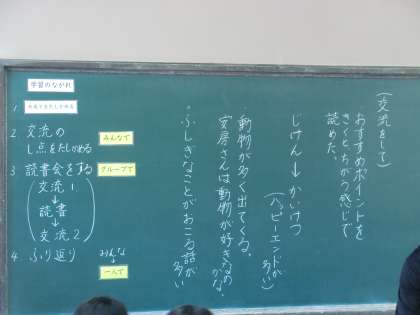 学習のながれ
1
2 交流の
し点をたしかめる
みんなで
3 読書会をする
グループで
交流1
↓
読書
↓
交流2
4 ふり返り
みんな
↓
一人で
(交流をして)
おすすめポイントを
きくと、ちがう感じで
読めた。
じけん→かいけつ
(ハッピーエンドが
多い)
・動物が多く出てくる。
安房さんは動物が好きなの
かな。
・ふしぎなことがおこる話が
多い